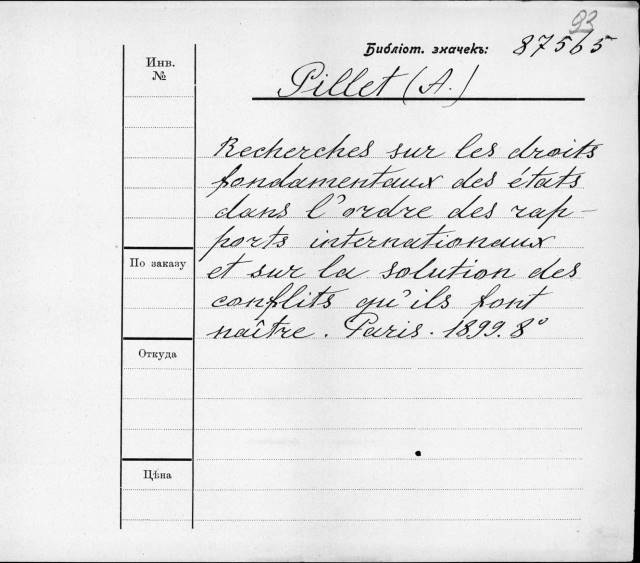 93
Библіот. значекъ: 87565
Инв.
№
Pillet (A.)
Recherches sur les droits
fondamentaux des états
dans l'ordre des rap-
ports internationaux
et sur la solution des
conflits qu'ils font
naître. Paris. 1899. 8°
По заказу
Откуда
Цѣна